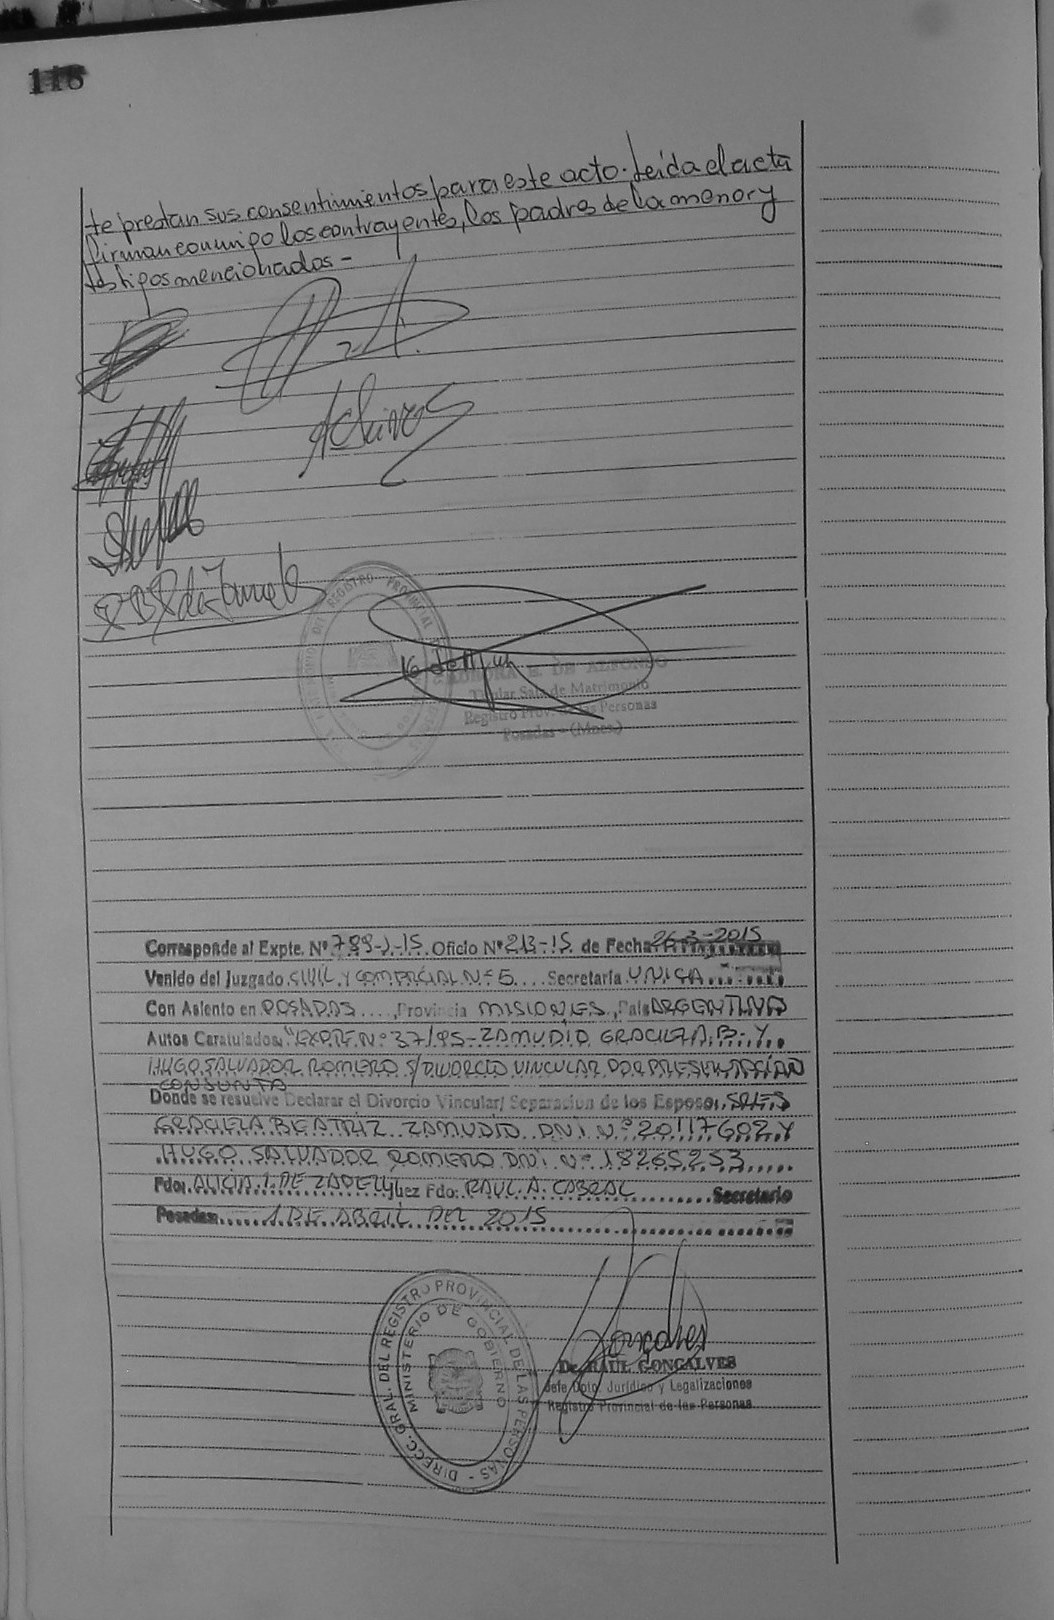 118
te prestan sus consentimientos para este acto. Leída el acta
firman conmigo los contrayentes, los padres de la menor y
testigos mencionados -
DE ALFONSO
Titular Sala de Matrimonio
Registro Prov. de las Personas
Posadas - (Mnes.)
Corresponde al Expte. Nº 789-J-15. Oficio Nº 213-15. de Fecha 26-3-2015
Venido del Juzgado CIVIL Y COMERCIAL Nº 5.... Secretaría UNICA
Con Asiento en POSADAS...., Provincia MISIONES, País ARGENTINA
Autos Caratulados, "EXPTE. Nº 37/95 - ZAMUDIO GRACIELA B. Y
HUGO SALVADOR ROMERO S/DIVORCIO VINCULAR POR PRESENTACIÓN
CONJUNTA
Donde se resuelve Declarar el Divorcio Vincular/ Separación de los Esposos, SRES
GRACIELA BEATRIZ ZAMUDIO DNI Nº 20117602 Y
HUGO SALVADOR ROMERO DNI Nº 18265.253.....
Fdo: ALICIA I. DE Juez Fdo: RAUL. A. CABRAL Secretario
Posadas: 1 DE ABRIL DEL 2015
DIRECC. GRAL. DEL REGISTRO PROVINCIAL DE LAS PERSONAS -
MINISTERIO DE GOBIERNO
Gonçalves
Dr. RAUL GONÇALVES
Jefe Dpto. Jurídico y Legalizaciones
Registro Provincial de las Personas